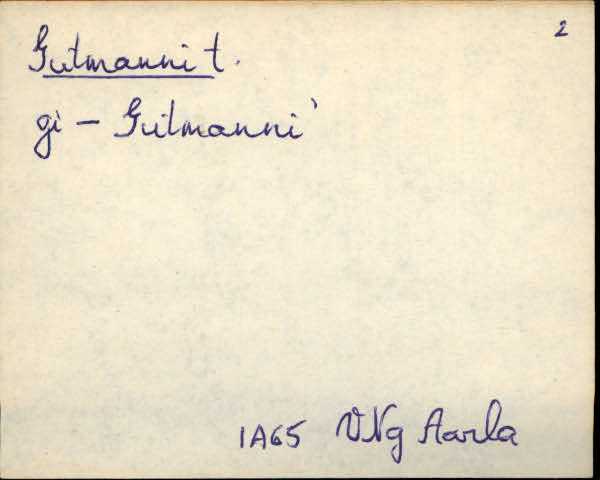 2
Gutmanni t.
gì – Gutmanni`
IA65 VNg Aarla